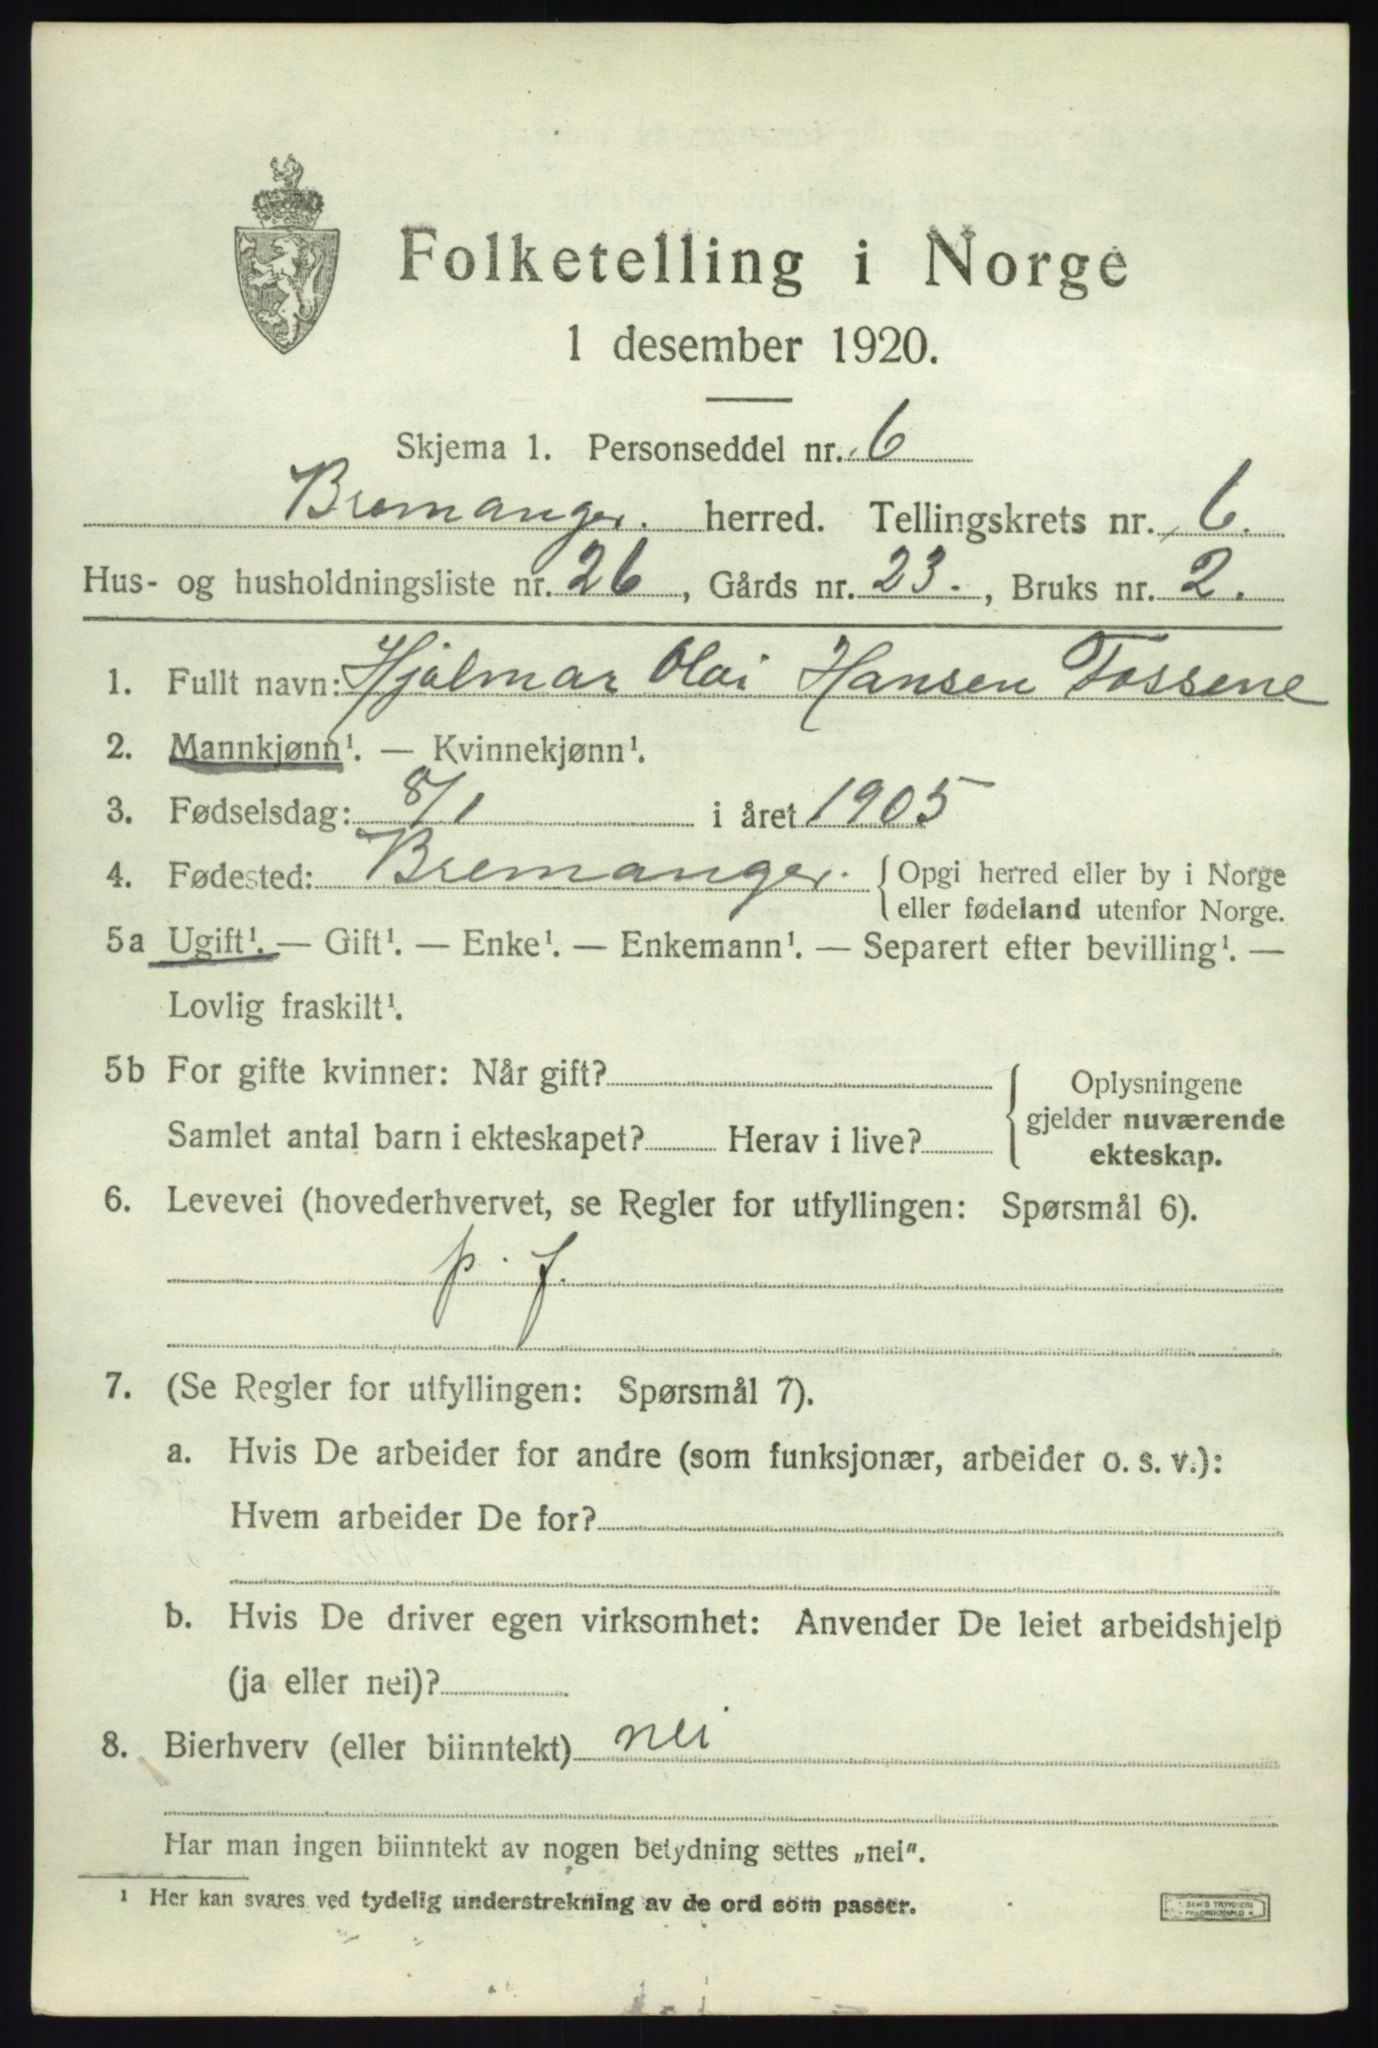 Folketelling i Norge
1 desember 1920.
Skjema 1. Personseddel nr. 6
Bremanger. herred. Tellingskrets nr. 6.
Hus- og husholdningsliste nr. 26, Gårds nr. 23., Bruks nr. 2.
1. Fullt navn: Hjalmar Olai Hansen Fossene
2. Mannkjønn¹. — Kvinnekjønn¹.
3. Fødselsdag: 8/1 i året 1905
4. Fødested: Bremanger. { Opgi herred eller by i Norge
eller fødeland utenfor Norge.
5a Ugift¹. — Gift¹. — Enke¹. — Enkemann¹. — Separert efter bevilling¹. —
Lovlig fraskilt¹.
5b For gifte kvinner: Når gift? { Oplysningene
gjelder nuværende
Samlet antal barn i ekteskapet? Herav i live? ekteskap.
6. Levevei (hovederhvervet, se Regler for utfyllingen: Spørsmål 6).
p. f.
7. (Se Regler for utfyllingen: Spørsmål 7).
a. Hvis De arbeider for andre (som funksjonær, arbeider o. s. v.):
Hvem arbeider De for?
b. Hvis De driver egen virksomhet: Anvender De leiet arbeidshjelp
(ja eller nei)?
8. Bierhverv (eller biinntekt) nei
Har man ingen biinntekt av nogen betydning settes „nei".
¹ Her kan svares ved tydelig understrekning av de ord som passer.
SEM'S TRYKKERI
FREDRIKSHALD